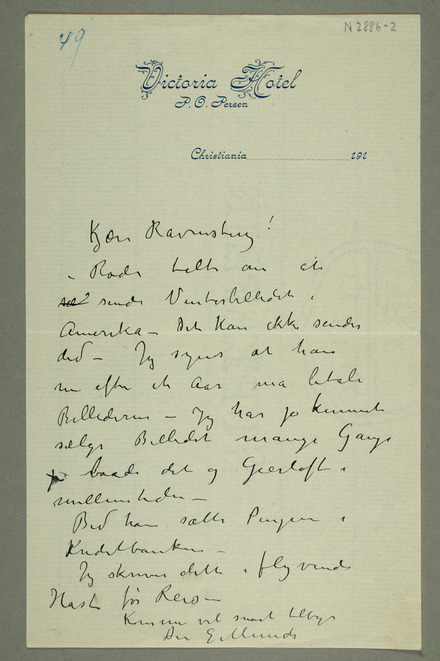 49
N 2886-2
Victoria Hotel
P. O. Persen
Christiania 191
Kjære Ravensberg!
Rode talte om at
sende Vinterbilledet i
Amerika – Det kan ikke sendes
did – Jeg synes at han
nu efter et Aar må betale
Billederne – Jeg har jo kunnet
sælge Billedet mange Gange
baade det og Geerloft i
mellemtiden –
Bed ham sætte Pengene i
Kreditbanken –
Jeg skriver dette i flyvende
Hast før Reise
Kommer vel snart tilbage
Din E. Munch